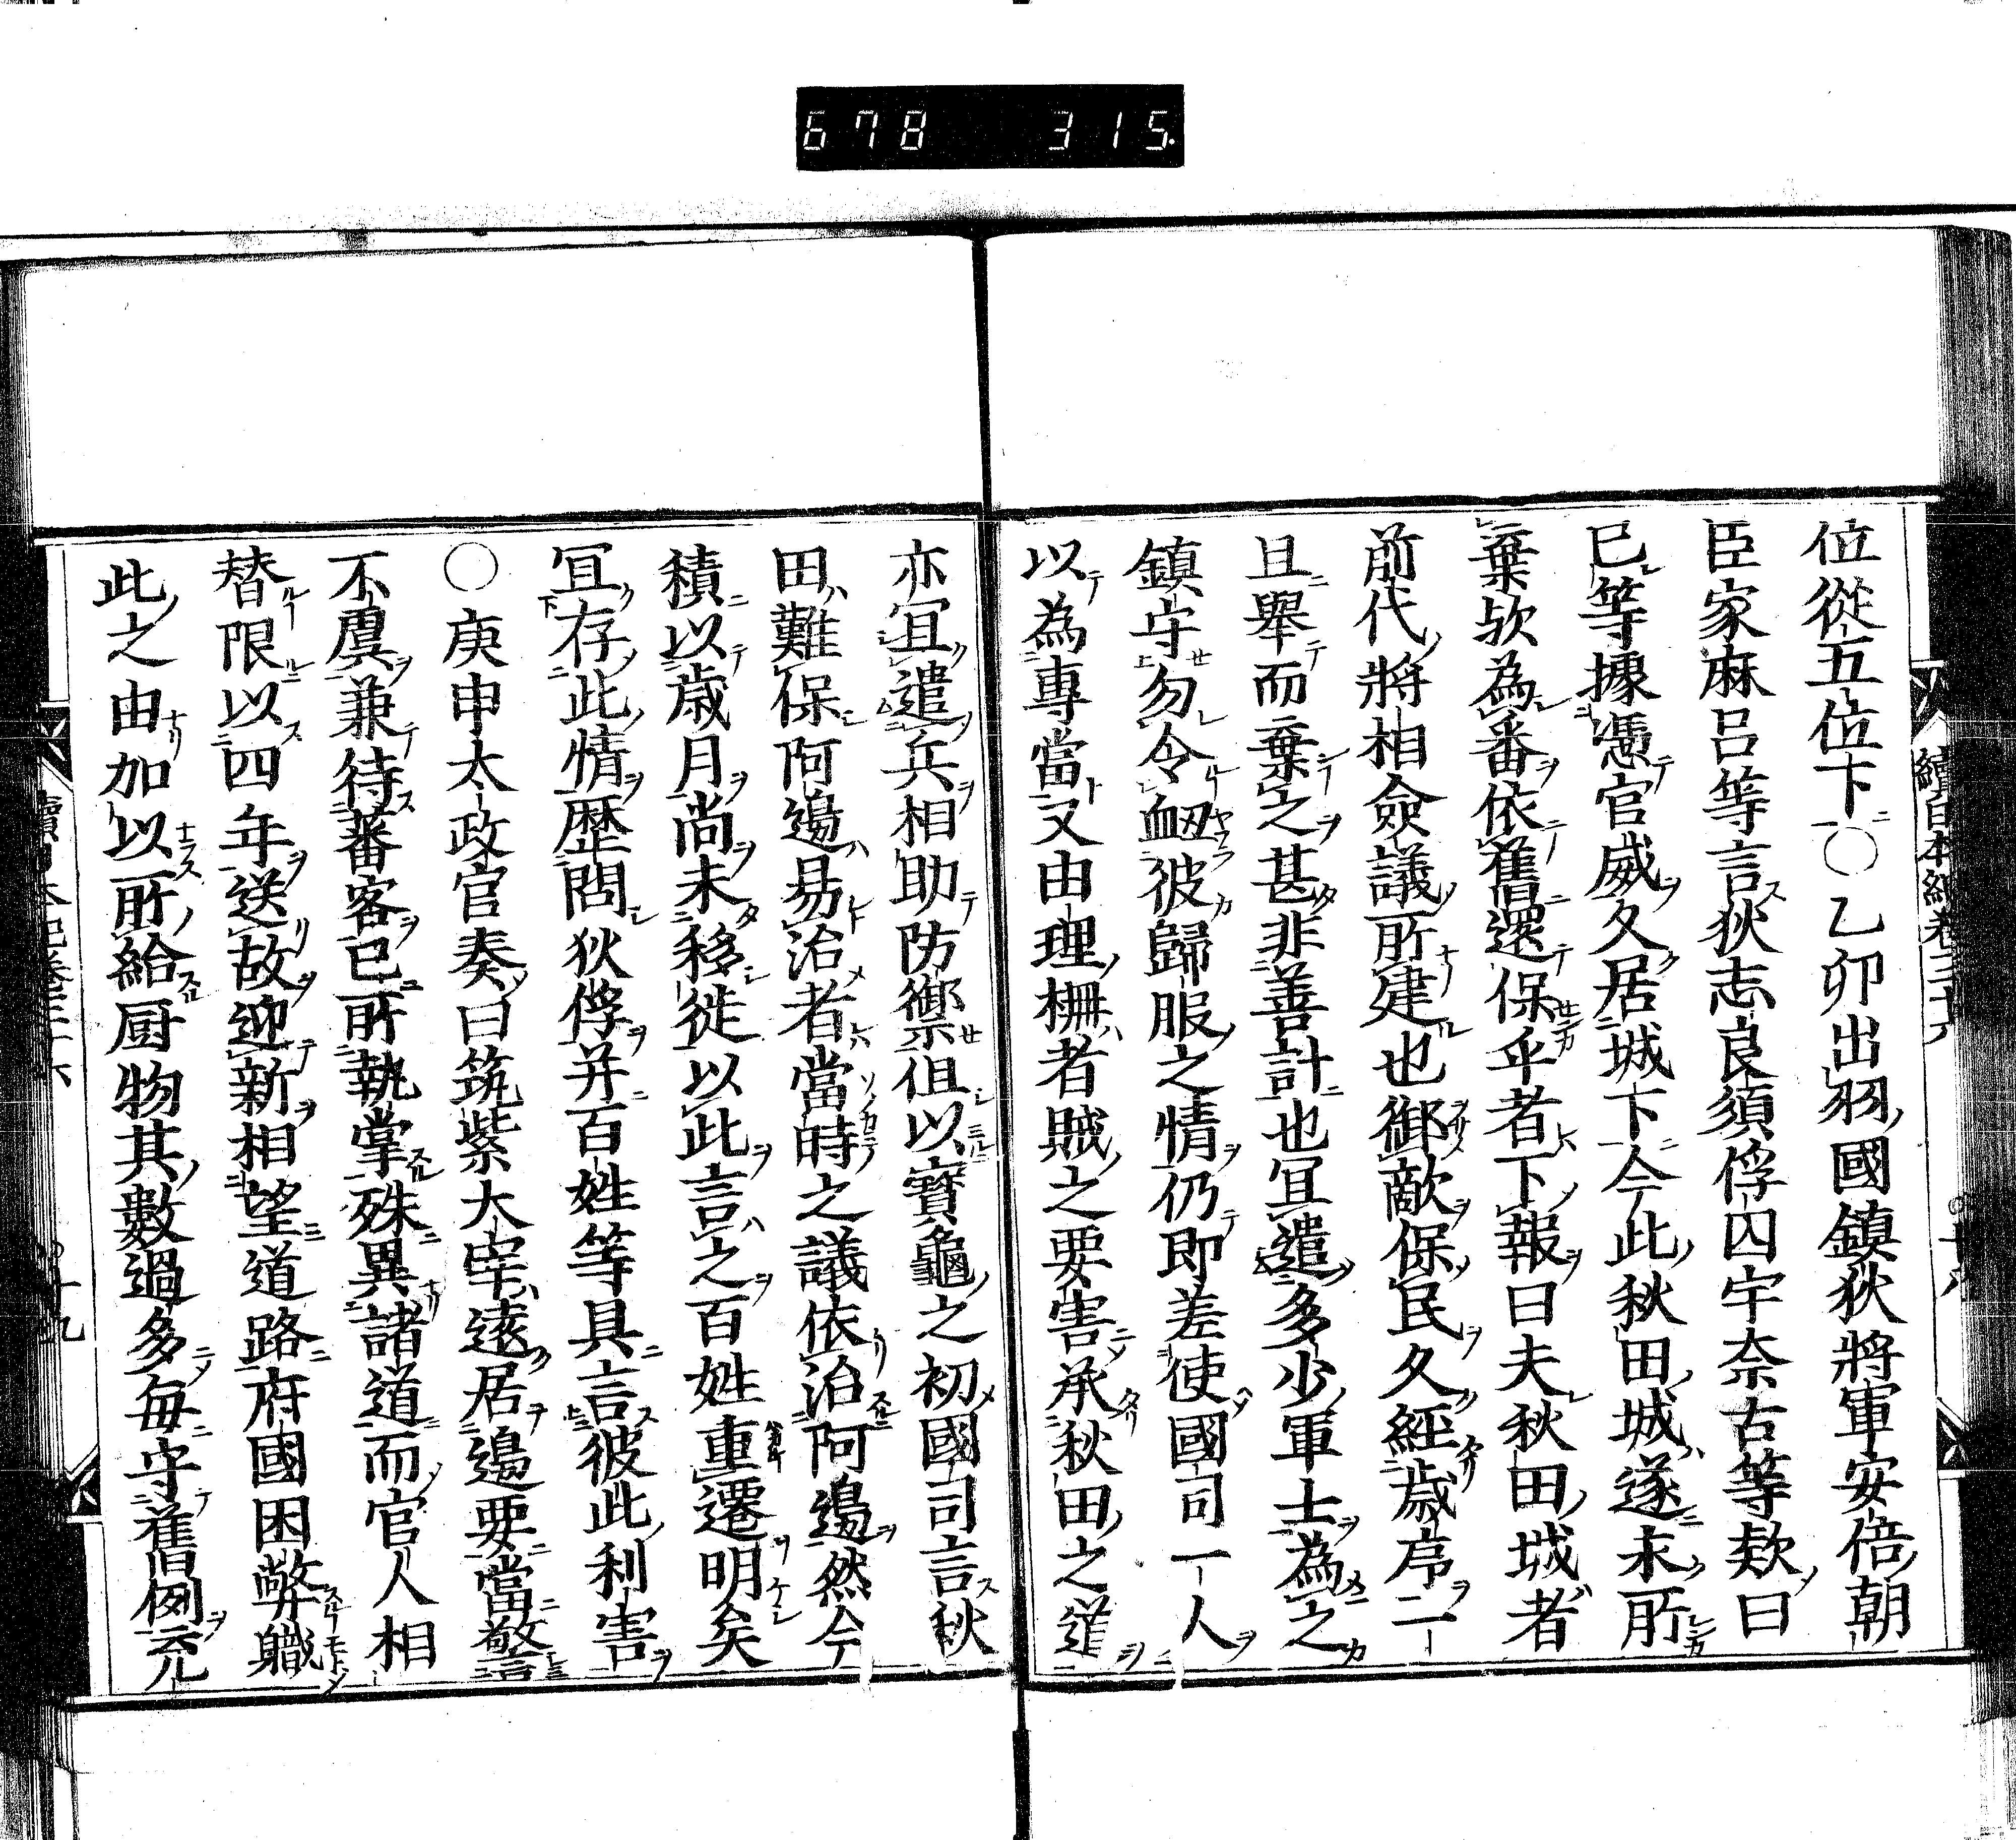 678 315.
位從五位下○乙卯出羽國鎮狄將軍安倍朝
臣家麻呂等言狄志良須俘囚宇奈古等欵曰
已等據憑官威久居城下今此秋田城遂永所
棄欤為番依舊還保乎者下報曰夫秋田城者
前代將相僉議所建也禦敵保民久經歳序一
旦舉而棄之甚非善計也冝遣多少軍士為之
鎮守勿令衂彼歸服之情仍即差使國司一人
以為專當又由理柵者賊之要害承秋田之道
亦冝遣兵相助防禦但以寶龜之初國司言秋
田難保河邊易治者當時之議依治河邊然今
積以歳月尚未移徙以此言之百姓重遷明矣
冝存此情歴問狄俘并百姓等具言彼此利害
○庚申太政官奏曰筑紫大宰遠居邊要當警
不虞兼待蕃客已所執掌殊異諸道而官人相
替限以四年送故迎新相望道路府國困弊職
此之由加以所給厨物其數過多毎守舊例充